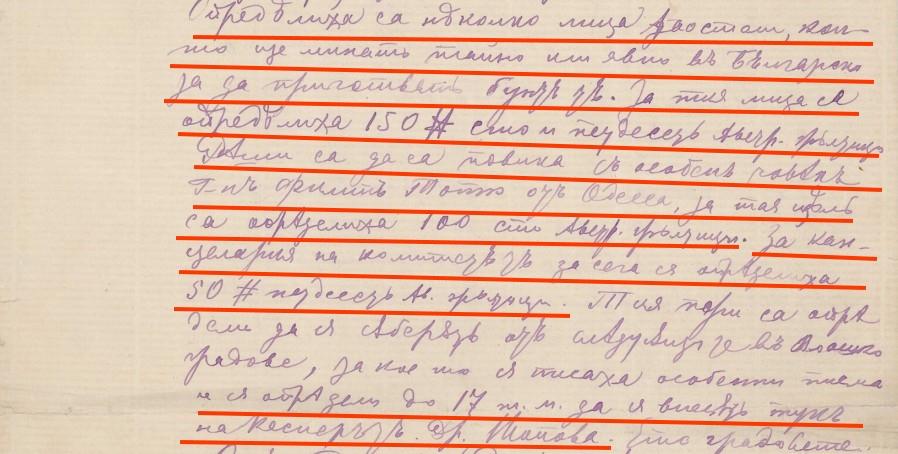 Опредѣлиха са нѣколко лица апостоли, кои-
то ще минатъ тайно или явно въ Българско
за да приготвятъ бунтътъ. За тия лица са
опредѣлиха 150 # сто и педесетъ Австр. жълтици
Рѣши са да са повика съ особенъ човѣкъ
Г-нъ Филипъ Тотю отъ Одесса, за тая цѣль
са опрѣделиха 100 сто Австр. жълтици. За кан-
целария на комитетътъ за сега ся опрѣделиха
50 # педесетъ Ав. жълтици. Тия пари са опрѣ
дели да ся сберятъ отъ слѣдующитѣ въ Влашко
градове, за кое то ся писаха особенни писма
и ся опрѣдели до 17 т. м. да ся внесѫтъ тукъ
на Касиерътъ Др. Попова. Ето градовете.